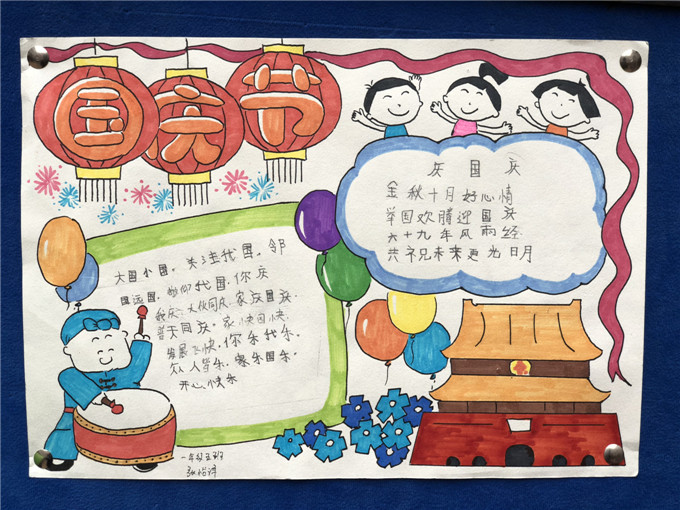 国庆节
庆国庆
金秋十月好心情
举国欢腾迎国庆
六十九年风雨经
共祝未来更光明
大国小国。关注我国。邻
国远国，我国，你庆
我庆，大伙同庆。家庆国庆。
普天同庆。家快国快。
发展飞快，你乐我乐。
众人皆乐。家乐国乐。
开心快乐
一年级五班